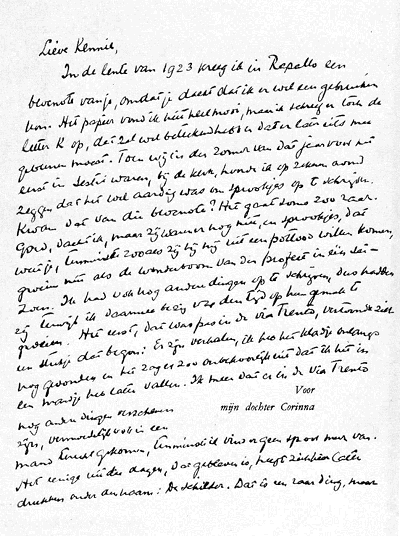 Lieve Kennie,
In de lente van 1923 kreeg ik in Rapallo een
blocnote van je, omdat je dacht dat ik er wel een gebruiken
kon. Het papier vond ik niet heel mooi, maar ik schreef er toch de
letter K op, dat zal wel beteekend hebben dat er later iets mee
gebeuren moest. Toen wij in den zomer van dat jaar voor het
eerst in Sestri waren, bij de kerk, hoorde ik op zekeren avond
zeggen dat het wel aardig was om sprookjes op te schrijven.
Kwam dat van die blocnote? Het gaat soms zoo raar.
Goed, dacht ik, maar zij waren er nog niet, en sprookjes, dat
weet je, tenminste zooals zij bij mij uit een potlood willen komen,
groeien niet als de wonderboom van den profeet in één
zon. Ik had ook nog andere dingen op te schrijven, dus hadden
zij terwijl ik daarmee bezig was den tijd op hun gemak te
groeien. Het eerst, dat was pas in de via Trento, vertoonde zich
een stukje dat begon: Er zijn verhalen, ik heb het kladje onlangs
nog gevonden en het zag er zoo onbehoorlijk uit dat ik het in
een mandje heb laten vallen. Ik meen dat er in de Via Trento
nog andere dingen verschenen
Voor
zijn, vermoedelijk ook in een
mijn dochter Corinna
mand terecht gekomen, tenminste ik vind er geen spoor meer van.
Het eenige uit die dagen, dat gebleven is, heeft zich later
drukken onder den naam: De schilder. Dat is een raar ding, maar